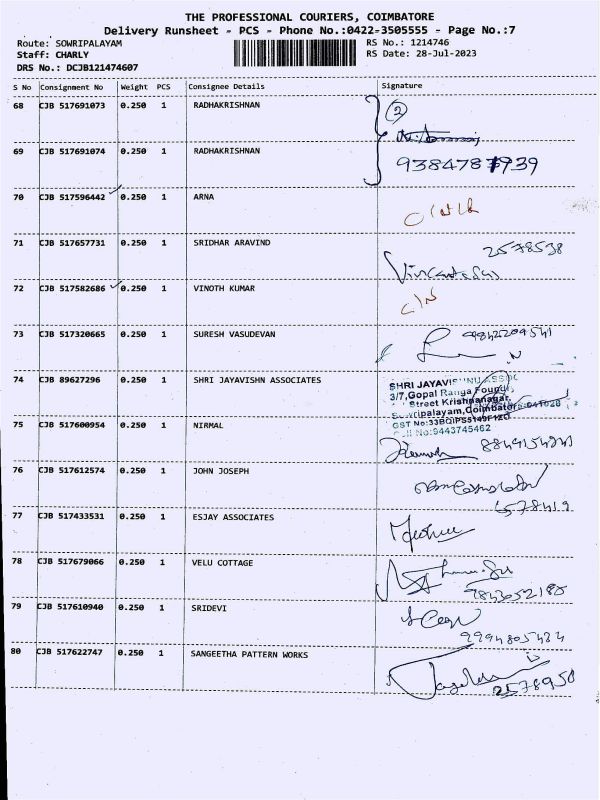 THE PROFESSIONAL COURIERS, COIMBATORE
Delivery Runsheet - PCS - Phone No.:0422-3505555 - Page No.:7
Route: SOWRIPALAYAM RS No.: 1214746
Staff: CHARLY RS Date: 28-Jul-2023
DRS No.: DCJB121474607
S No Consignment No Weight PCS Consignee Details Signature
68 CJB 517691073 0.250 1 RADHAKRISHNAN 2
69 CJB 517691074 0.250 1 RADHAKRISHNAN
70 CJB 517596442 0.250 1 ARNA
71 CJB 517657731 0.250 1 SRIDHAR ARAVIND 2578538
72 CJB 517582686 0.250 1 VINOTH KUMAR C/N
73 CJB 517320665 0.250 1 SURESH VASUDEVAN
74 CJB 89627296 0.250 1 SHRI JAYAVISHN ASSOCIATES
SHRI JAYAVISHNU ASSOC
3/7,Gopal Ranga Foundr
Street Krishnanagar,
Sowripalayam,Coimbatore-641028
Cell No:9443745462
75 CJB 517600954 0.250 1 NIRMAL
76 CJB 517612574 0.250 1 JOHN JOSEPH
77 CJB 517433531 0.250 1 ESJAY ASSOCIATES
78 CJB 517679066 0.250 1 VELU COTTAGE
9843052180
79 CJB 517610940 0.250 1 SRIDEVI
9994805434
80 CJB 517622747 0.250 1 SANGEETHA PATTERN WORKS
2578950